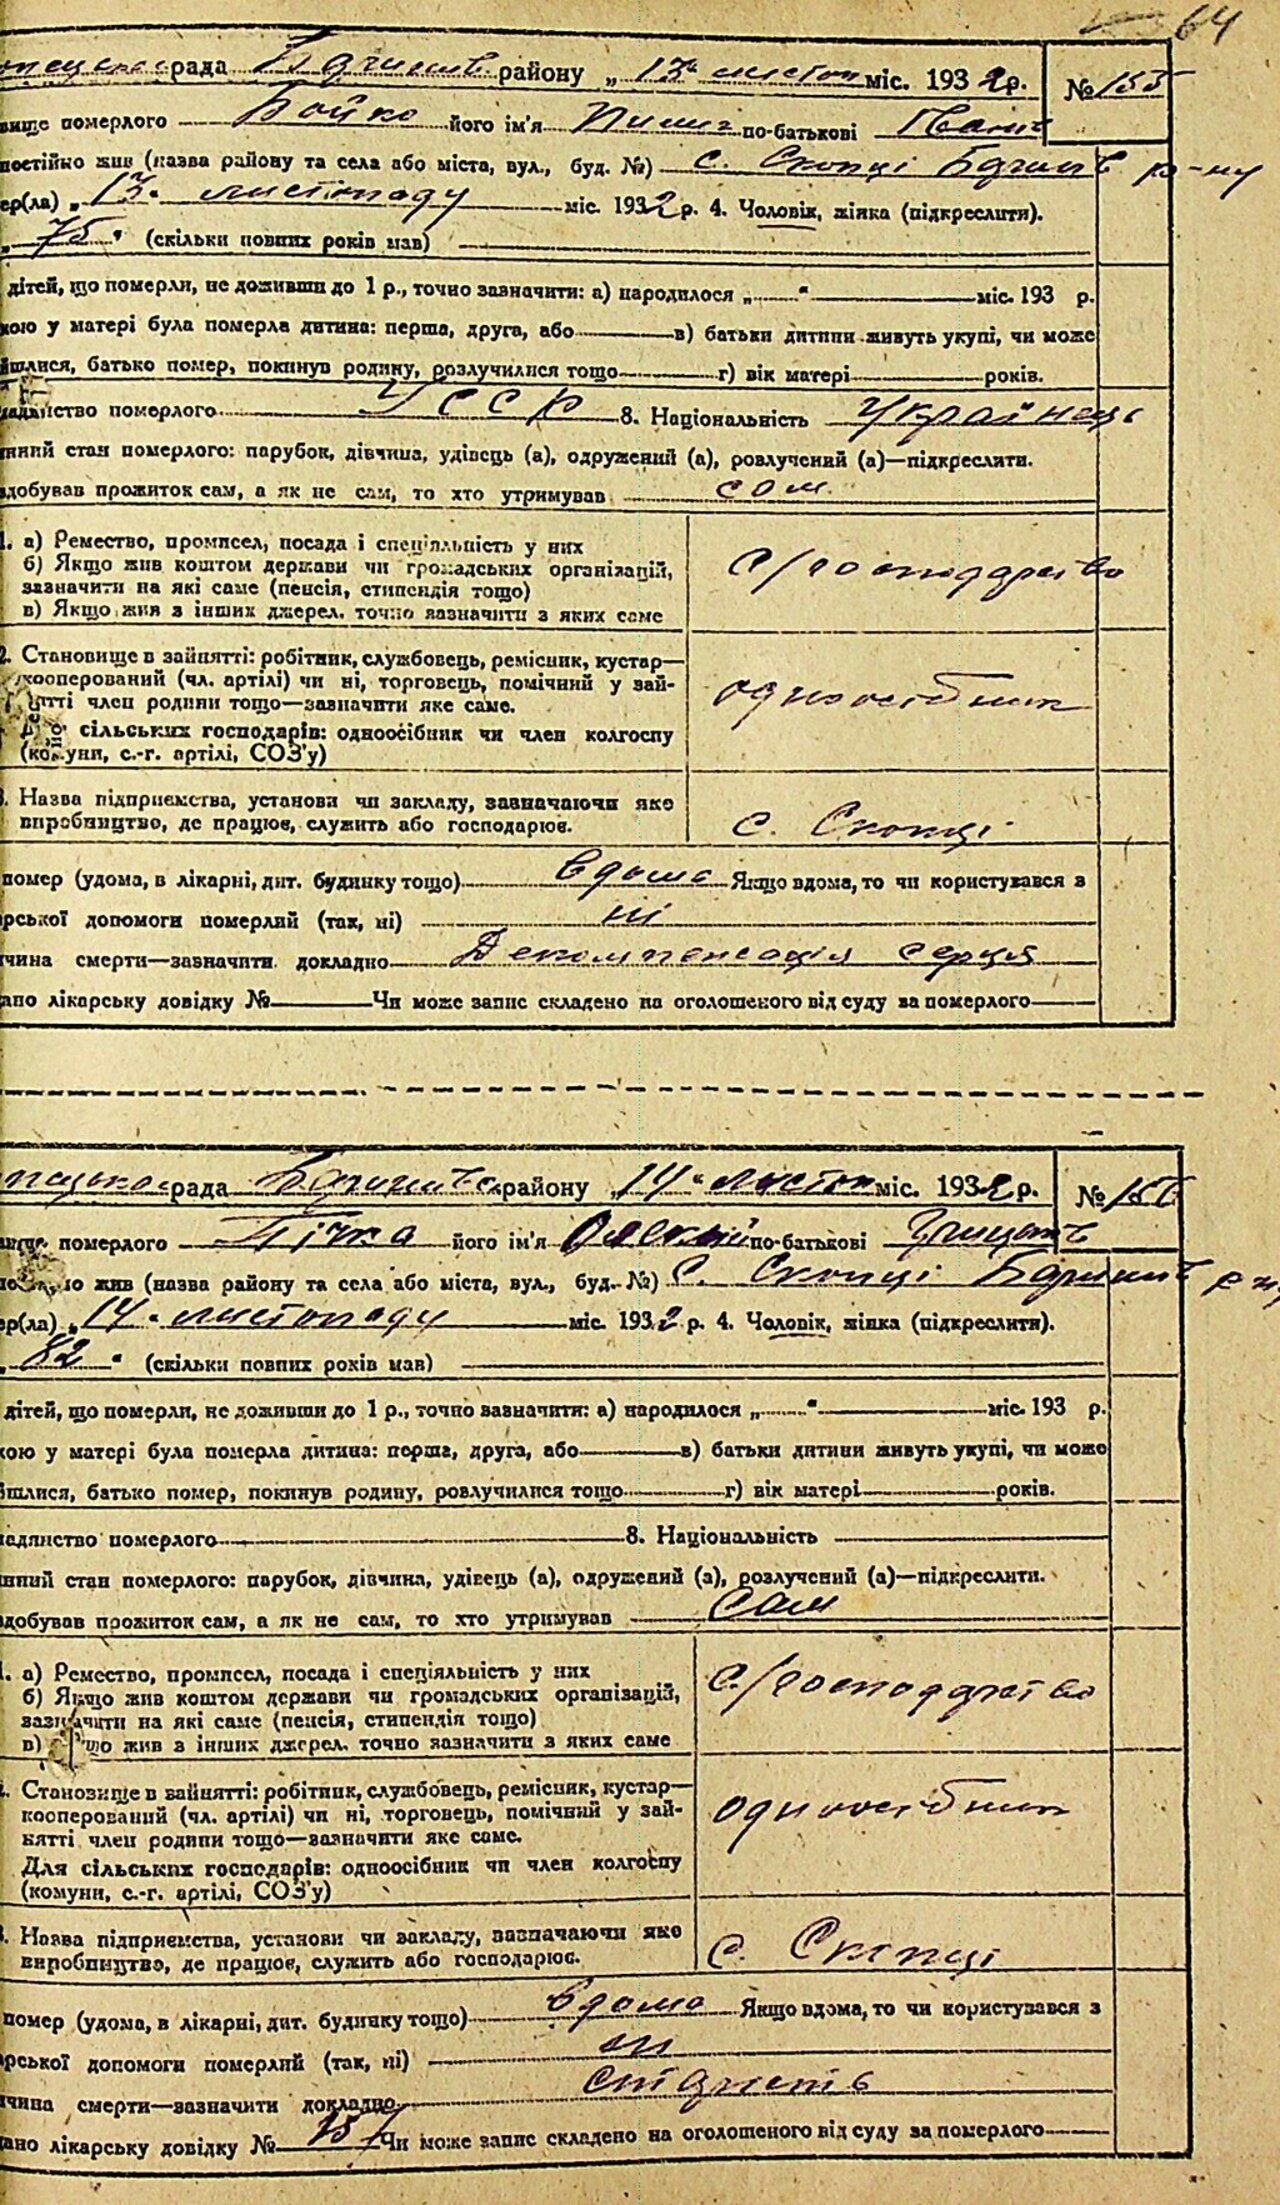 64
рада Баришів. району „13" листоп міс. 1932 р. №155
вище померлого Бойко його ім'я Пилип по-батькові Іванів
постійно жив (назва району та села або міста, вул., буд. №) с. Скопці Бариш р-ну
ер(ла) „13" листопаду міс. 1932 р. 4. Чоловік, жінка (підкреслити).
„75" (скільки повних років мав)
дітей, що померли, не доживши до 1 р., точно зазначити: а) народилося „ " міс. 193 р.
кою у матері була померла дитина: перша, друга, або в) батьки дитини живуть укупі, чи може
йшлися, батько помер, покинув родину, розлучилися тощо г) вік матері років.
адянство померлого УССР 8. Національність Українець
нний стан померлого: парубок, дівчина, удівець (а), одружений (а), розлучений (а)—підкреслити.
здобував прожиток сам, а як не сам, то хто утримував сам
1. а) Ремество, промисел, посада і спеціяльність у них
б) Якщо жив коштом держави чи громадських організацій,
зазначити на які саме (пенсія, стипендія тощо)
в) Якщо жив з інших джерел. точно зазначити з яких саме
с/господарство
2. Становище в зайнятті: робітник, службовець, ремісник, кустар—
кооперований (чл. артілі) чи ні, торговець, помічний у зай-
нятті член родини тощо—зазначити яке саме.
сільських господарів: одноосібник чи член колгоспу
(комуни, с.-г. артілі, СОЗ'у)
одноосібник
3. Назва підприємства, установи чи закладу, зазначаючи яке
виробництво, де працює, служить або господарює.
с. Скопці
помер (удома, в лікарні, дит. будинку тощо) вдома Якщо вдома, то чи користувався з
рської допомоги померлий (так, ні) ні
чина смерти—зазначити докладно Декомпенсація серця
дано лікарську довідку № Чи може запис складено на оголошеного від суду за померлого
рада Баришівск району „14" листоп міс. 1932 р. №156
вище померлого Пічка його ім'я Олексій по-батькові Грицьків
жив (назва району та села або міста, вул., буд. №) с. Скопці Баришів р-ну
ер(ла) „14" листопаду міс. 1932 р. 4. Чоловік, жінка (підкреслити).
„82" (скільки повних років мав)
дітей, що померли, не доживши до 1 р., точно зазначити: а) народилося „ " міс. 193 р.
кою у матері була померла дитина: перша, друга, або в) батьки дитини живуть укупі, чи може
йшлися, батько помер, покинув родину, розлучилися тощо г) вік матері років.
адянство померлого 8. Національність
нний стан померлого: парубок, дівчина, удівець (а), одружений (а), розлучений (а)—підкреслити.
здобував прожиток сам, а як не сам, то хто утримував сам
1. а) Ремество, промисел, посада і спеціяльність у них
б) Якщо жив коштом держави чи громадських організацій,
зазначити на які саме (пенсія, стипендія тощо)
в) Якщо жив з інших джерел. точно зазначити з яких саме
с./господарство
2. Становище в зайнятті: робітник, службовець, ремісник, кустар—
кооперований (чл. артілі) чи ні, торговець, помічний у зай-
нятті член родини тощо—зазначити яке саме.
Для сільських господарів: одноосібник чи член колгоспу
(комуни, с.-г. артілі, СОЗ'у)
одноосібник
3. Назва підприємства, установи чи закладу, зазначаючи яке
виробництво, де працює, служить або господарює.
с. Скопці
помер (удома, в лікарні, дит. будинку тощо) вдома Якщо вдома, то чи користувався з
рської допомоги померлий (так, ні) ні
чина смерти—зазначити докладно старість
дано лікарську довідку № Чи може запис складено на оголошеного від суду за померлого